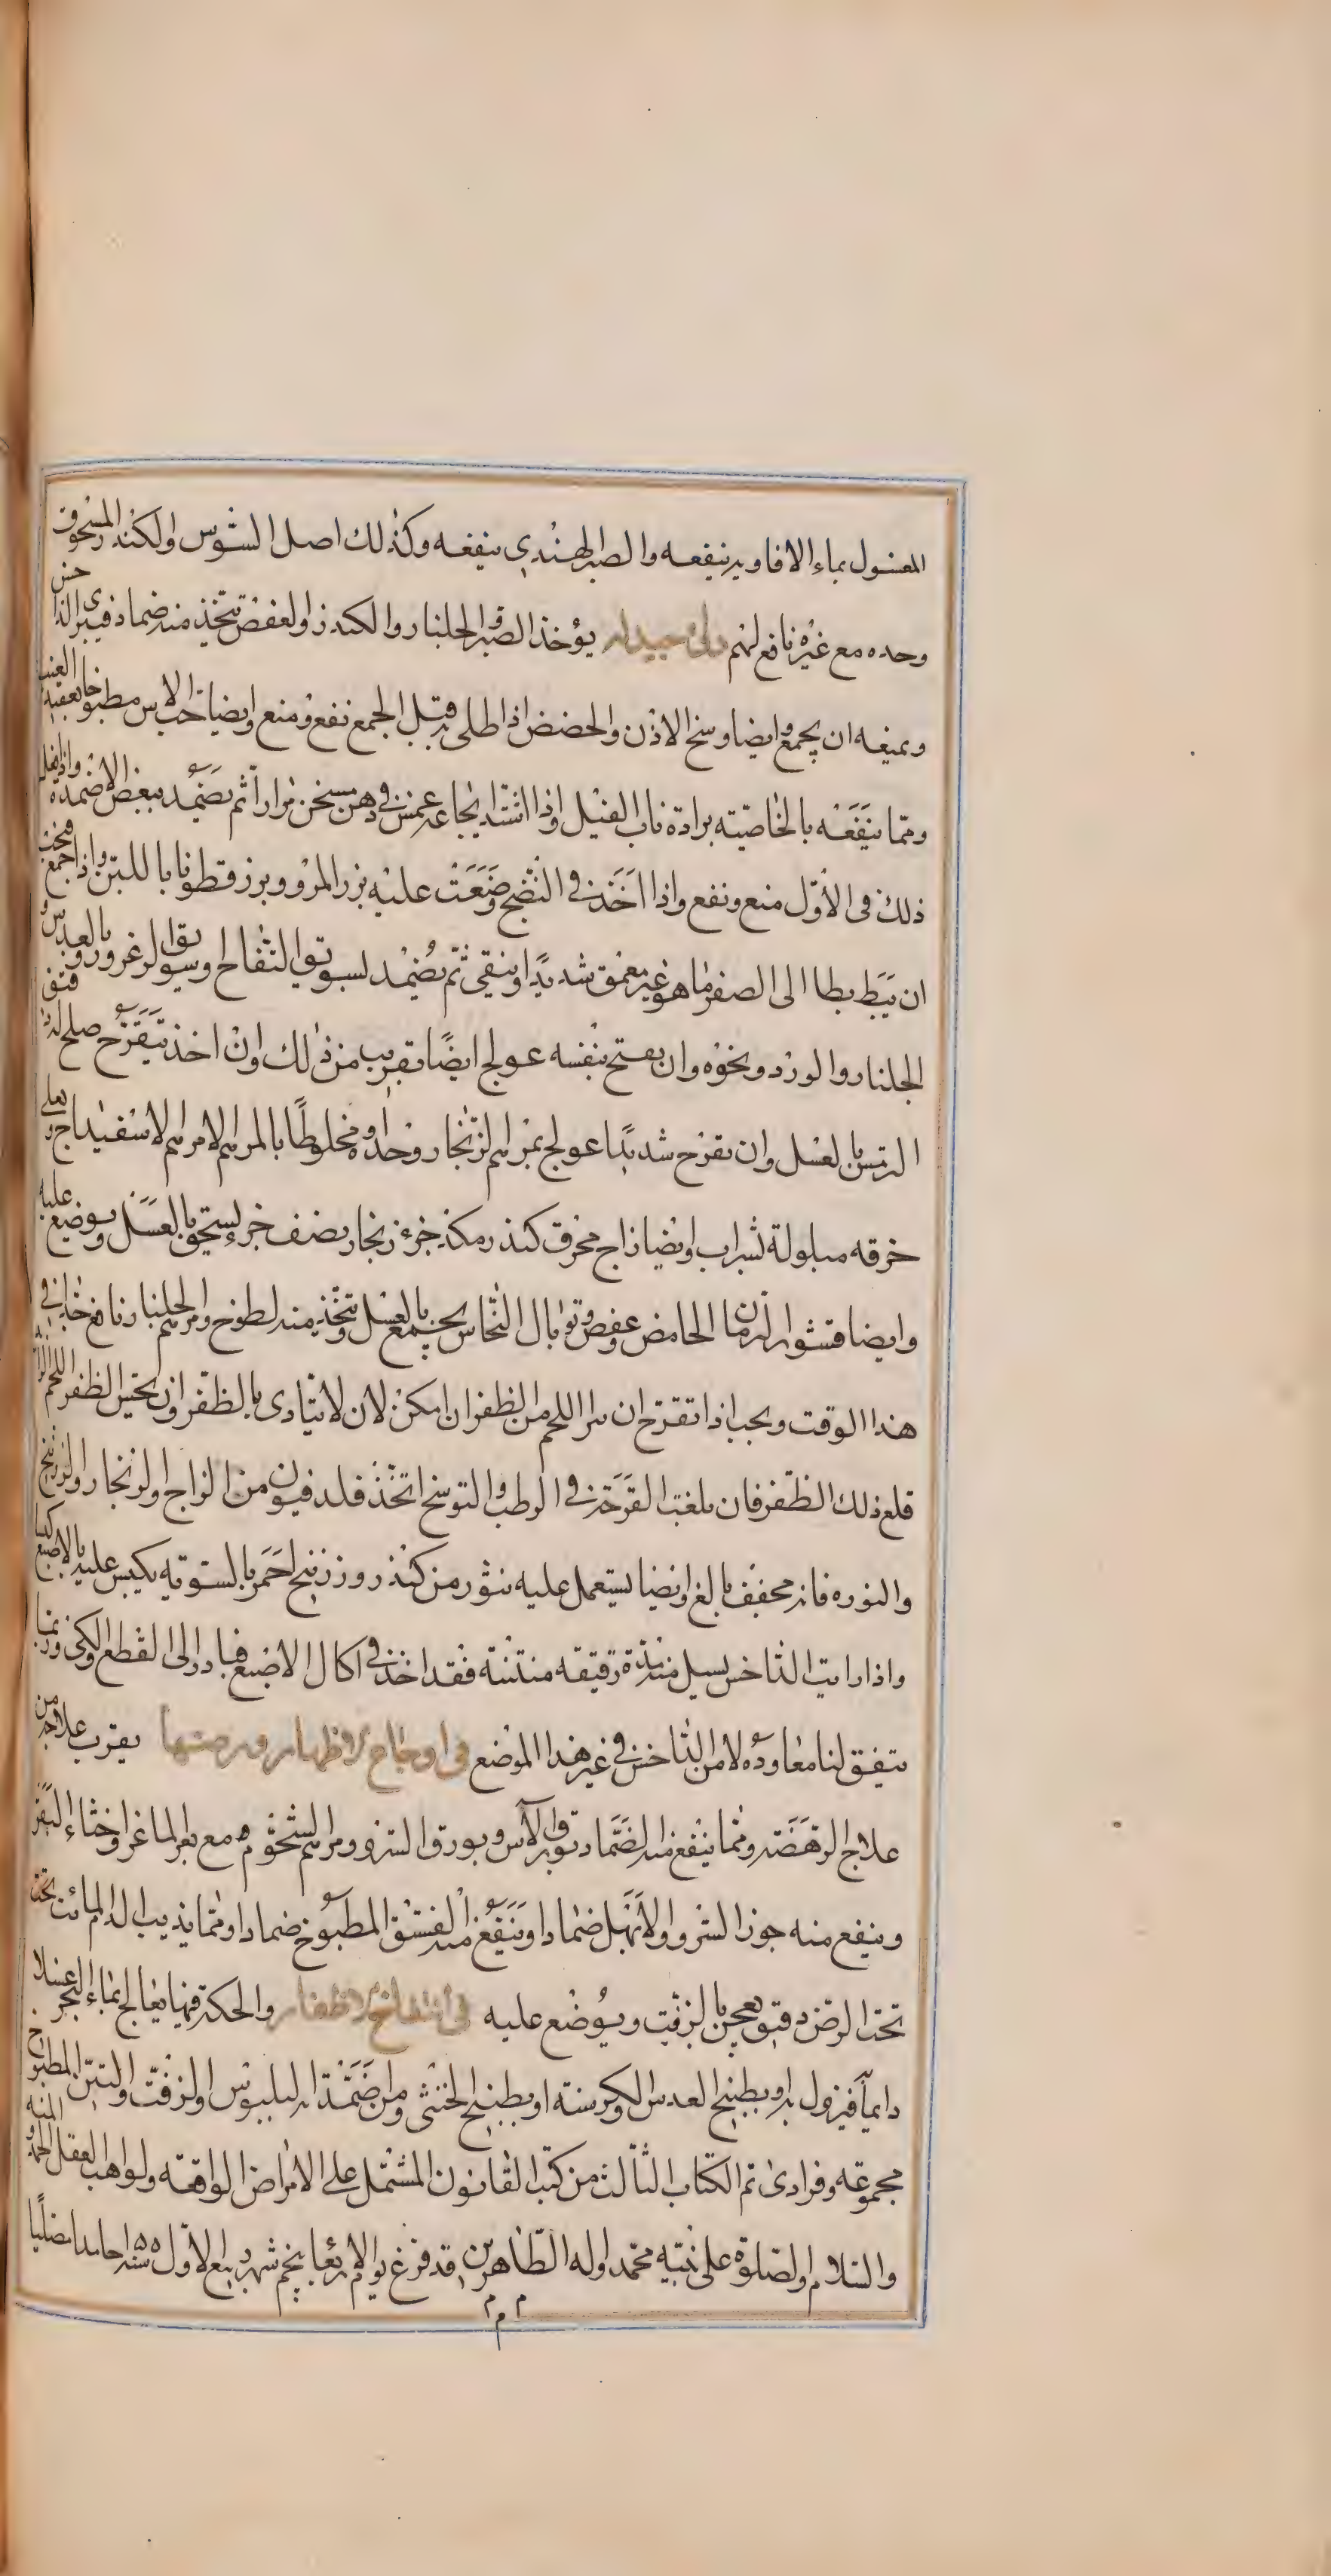 المغسول بماء الافاويه ينفعه والصبر الهندي ينفعه وكذلك اصل السوس والكندر المسحوق
وحده مع غيره نافع لهم دواء جيد له يؤخذ الصبر والجلنار والكندر والعفص يتخذ منه ضماد فيبرى الداحس
ويمنعه ان يجمع وايضا وسخ الاذن والحضض اذا طلى به قبل الجمع نفع ومنع وايضا حب الاس مطبوخا بعقيد العنب
ومما ينفعه بالخاصيته برادة ناب الفيل واذا اشتد ايجاعه غمس في دهن مسخن مرارا ثم يضمد ببعض الاضمدة واذا فعل
ذلك فى الاول منع ونفع واذا اخذ في النضج وضعت عليه بزر المرو وبرز قطونا باللبن واذا جمع فيجب
ان يبط بطا الى الصغر ما هو غير معمق شديدا وينقى ثم يضمد بسويق التفاح وسويق الزعرور وبالعدس و
الجلنار والورد ونحوه وان يفتح بنفسه عولج ايضا بقريب من ذلك وان اخذ يتقرح صلح له دقيق
الترمس بالعسل وان تقرح شديدا عولج بمرهم الزنجار وحده ومخلوطا بالمرهم الامرهم الاسفيداج ويعلى
خرقه مبلولة بشراب وايضا زاج محرق كندر مكد جزء زنجار نصف جزء يسحق بالعسل ويوضع عليه
وايضا قشور الرمان الحامض وعفص وتوبال النحاس يجمع بالعسل ويتخذ منه لطوخ ومرهم الجلنار نافع جدا في
هذا الوقت ويجب اذا تقرح ان يبرا اللحم من الظفر ان امكن لان لا يتادى بالظفر وان يحس الظفر اللحم الزائد
قلع ذلك الظفر فان بلغت القرحة في الرطب والتوسخ اتخذ فلدفيون من الزاج والزنجار والزرنيخ
والنوره فانه مجفف بالغ وايضا يستعمل عليه نثور من كندر وزرنيخ احمر بالسويه يكبس عليه بالاصبع كبسا
واذا رايت الداخس يسيل منه مدة رقيقه منتنة فقد اخذ في اكال الاصبع فبادر الى القطع والكى وربما
يتفق لنا معاوده لامر الداخس في غير هذا الموضع فى اوجاع الاظفار ورضها يقرب علاجه من
علاج الرهصة ومما ينفع منه الضماد بورق الآس وبورق السرو ومرهم الشحوم مع بعر الماعز واخثاء البقر
وينفع منه جوز السرو والابهل ضمادا وينفع منه الفستق المطبوخ ضمادا ومما يذيب الدم المائت تحت
تحت الرض دقيق يعجن بالزفت ويوضع عليه فى انتفاخ الاظفار والحكة فيها يعالج بماء البحر غسلا
دايما فيزول به وبطبيخ العدس والكرسنه او بطبيخ الخنثى وان ضمدته بالبلبوس والزفت والتين المطبوخ
مجموعه وفرادى تم الكتاب الثالث من كتب القانون المشتمل على الامراض الواقعه ولواهب العقل الحمد و المنه
والسلام والصلوة على نبيه محمد اوله الطاهرين قد فرغ يوم الاربعا پنجم شهر ربيع الاول سنه حامدا مصليا
م م م